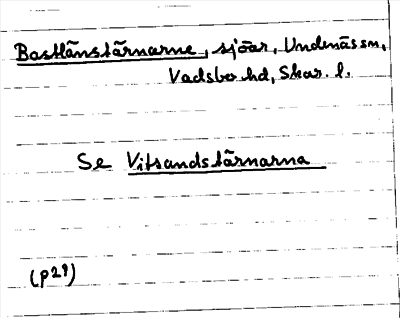 Bastlånstärnarne, sjöar, Undenäs sn,
Vadsbo hd, Skar. l.
Se Vitsandstärnarna
(p29)